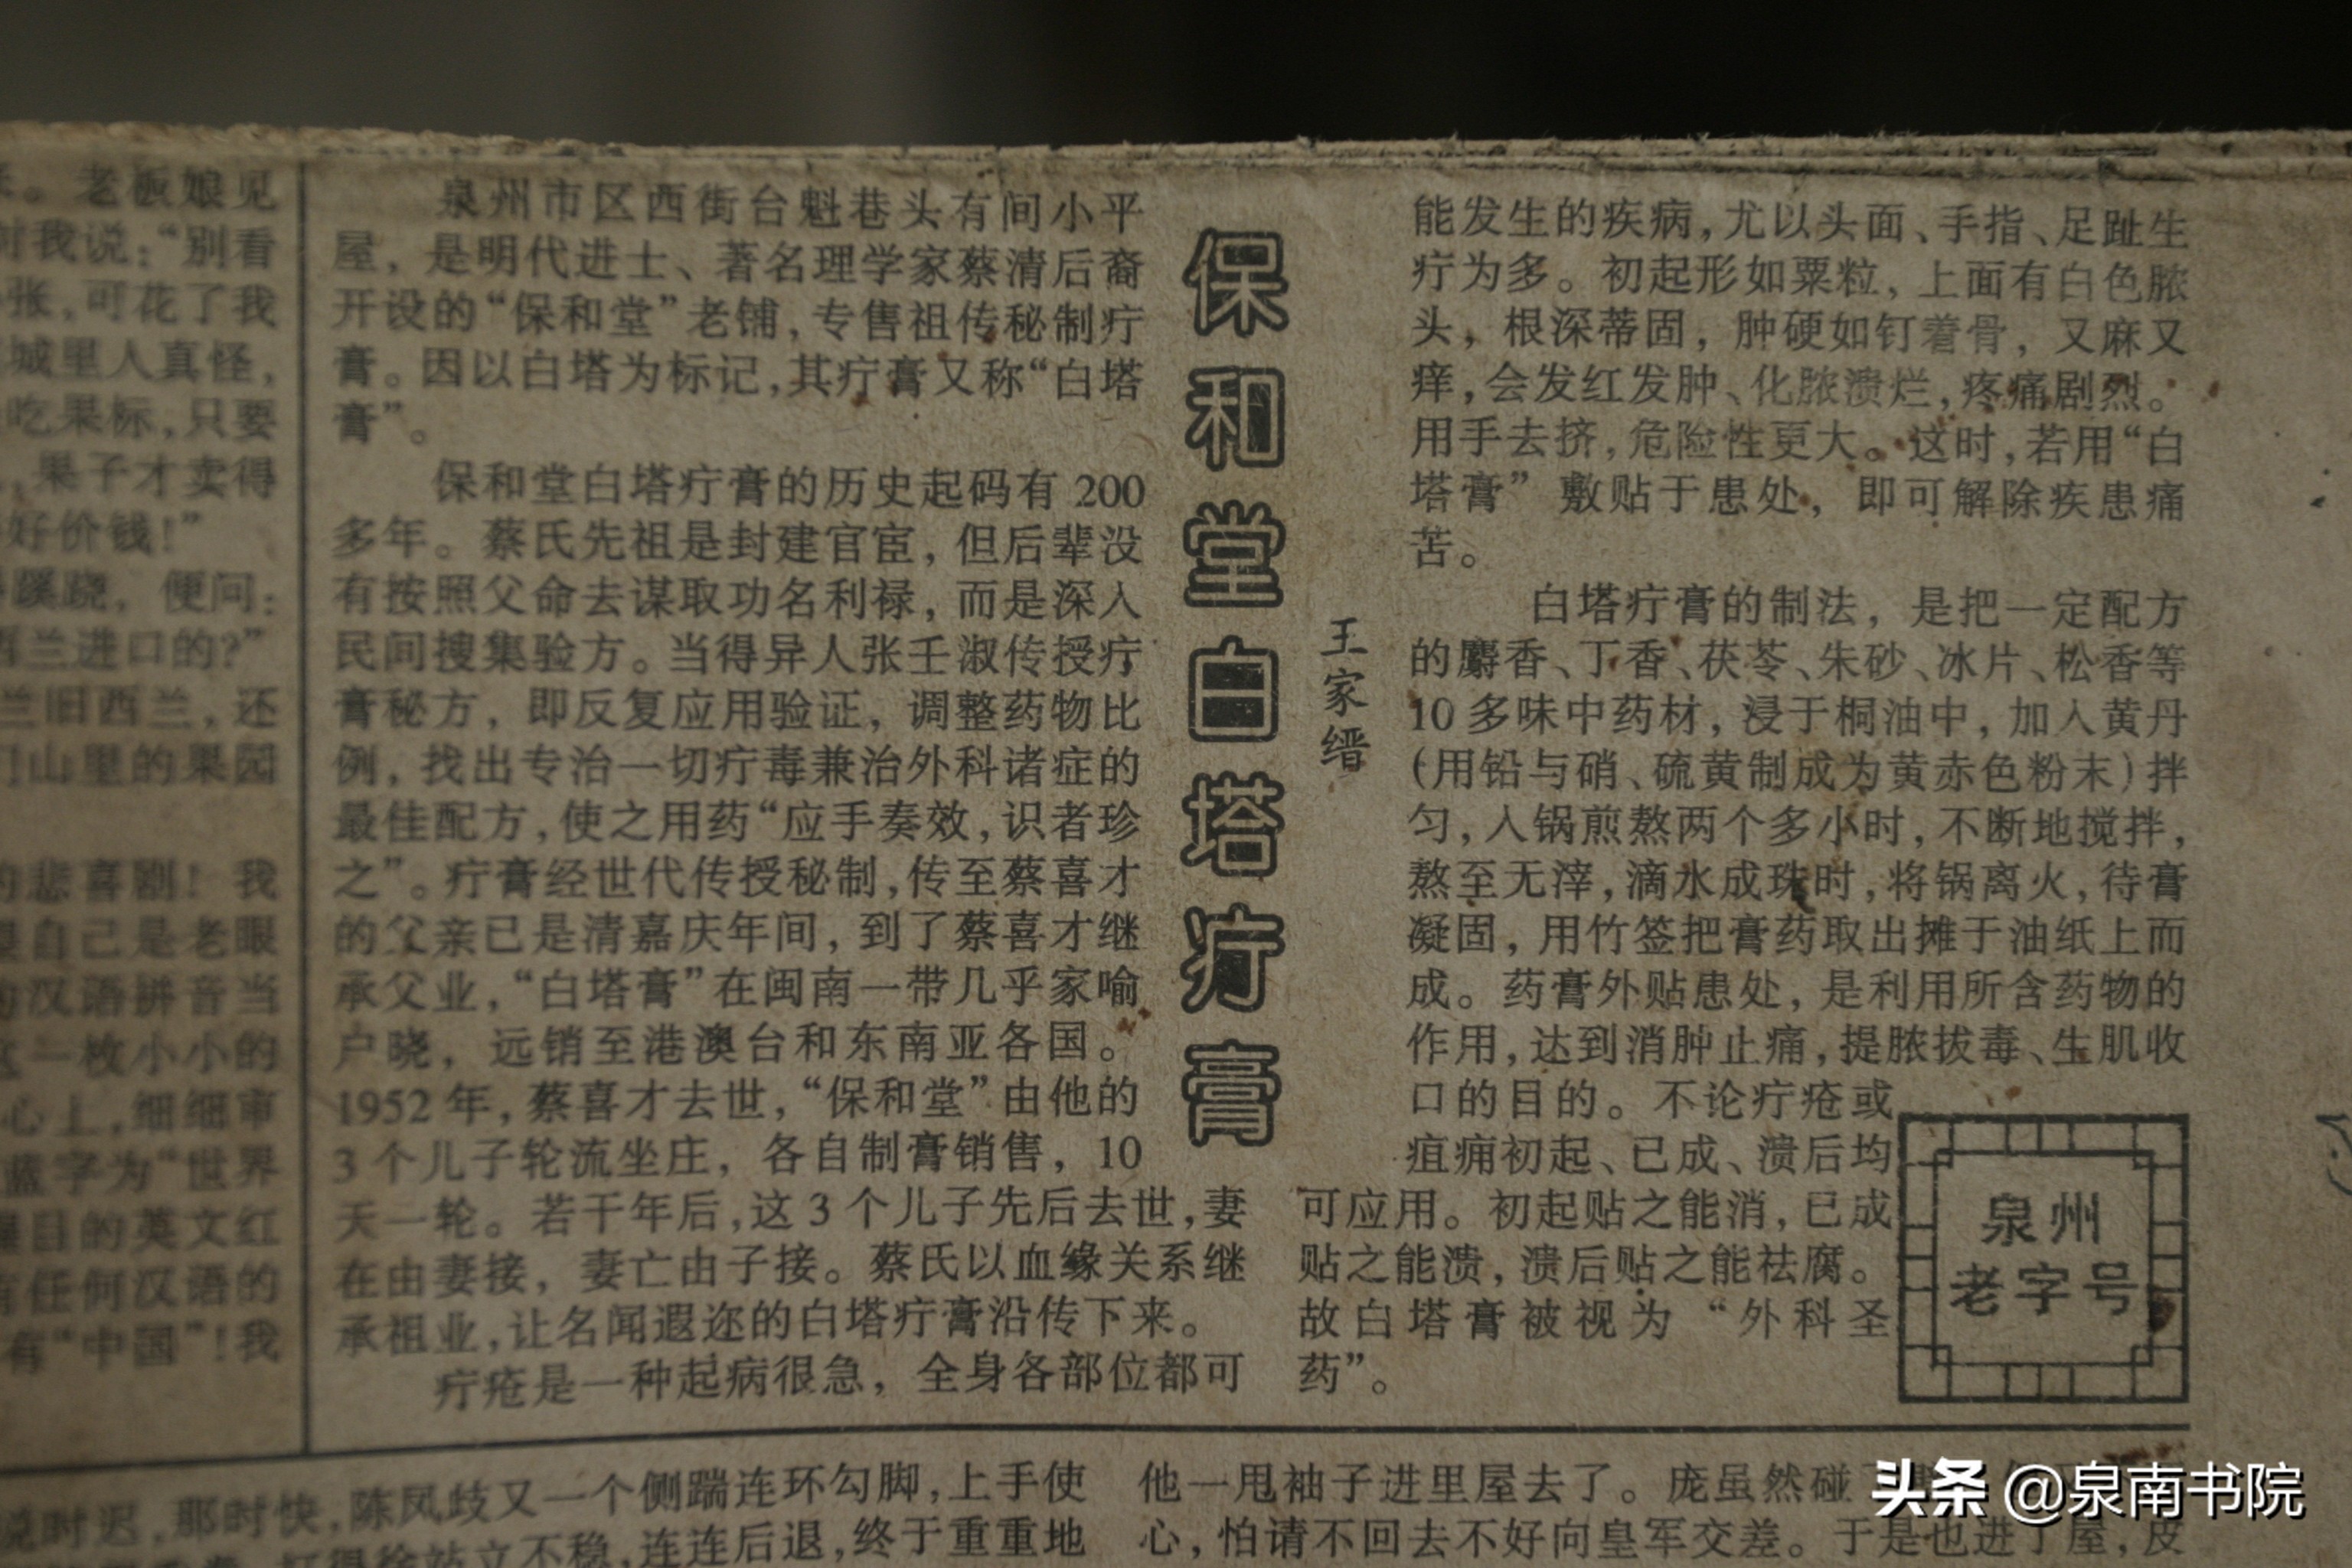 老板娘见
我说：“别看
张，可花了我
城里人真怪，
吃果标，只要
果子才卖得
好价钱！”
蹊跷，便问：
西兰进口的？”
兰旧西兰，还
山里的果园
悲喜剧！我
自己是老眼
汉语拼音当
一枚小小的
心上，细细审
蓝字为“世界
目的英文红
任何汉语的
有“中国”！我
保和堂白塔疔膏
王家缙
泉州市区西街台魁巷头有间小平
屋，是明代进士、著名理学家蔡清后裔
开设的“保和堂”老铺，专售祖传秘制疔
膏。因以白塔为标记，其疔膏又称“白塔
膏”。
保和堂白塔疔膏的历史起码有200
多年。蔡氏先祖是封建官宦，但后辈没
有按照父命去谋取功名利禄，而是深入
民间搜集验方。当得异人张壬淑传授疔
膏秘方，即反复应用验证，调整药物比
例，找出专治一切疔毒兼治外科诸症的
最佳配方，使之用药“应手奏效，识者珍
之”。疔膏经世代传授秘制，传至蔡喜才
的父亲已是清嘉庆年间，到了蔡喜才继
承父业，“白塔膏”在闽南一带几乎家喻
户晓，远销至港澳台和东南亚各国。
1952年，蔡喜才去世，“保和堂”由他的
3个儿子轮流坐庄，各自制膏销售，10
天一轮。若干年后，这3个儿子先后去世，妻
在由妻接，妻亡由子接。蔡氏以血缘关系继
承祖业，让名闻遐迩的白塔疔膏沿传下来。
疔疮是一种起病很急，全身各部位都可
能发生的疾病，尤以头面、手指、足趾生
疔为多。初起形如粟粒，上面有白色脓
头，根深蒂固，肿硬如钉着骨，又麻又
痒，会发红发肿、化脓溃烂，疼痛剧烈。
用手去挤，危险性更大。这时，若用“白
塔膏”敷贴于患处，即可解除疾患痛
苦。
白塔疔膏的制法，是把一定配方
的麝香、丁香、茯苓、朱砂、冰片、松香等
10多味中药材，浸于桐油中，加入黄丹
（用铅与硝、硫黄制成为黄赤色粉末）拌
匀，入锅煎熬两个多小时，不断地搅拌，
熬至无滓，滴水成珠时，将锅离火，待膏
凝固，用竹签把膏药取出摊于油纸上而
成。药膏外贴患处，是利用所含药物的
作用，达到消肿止痛，提脓拔毒、生肌收
口的目的。不论疔疮或
疽痈初起、已成、溃后均
可应用。初起贴之能消，已成
贴之能溃，溃后贴之能祛腐。
故白塔膏被视为“外科圣
药”。
泉州
老字号
说时迟，那时快，陈凤歧又一个侧踹连环勾脚，上手使
站立不稳，连连后退，终于重重地
他一甩袖子进里屋去了。庞虽然碰
心，怕请不回去不好向皇军交差。于是也进了屋，皮
头条 @泉南书院